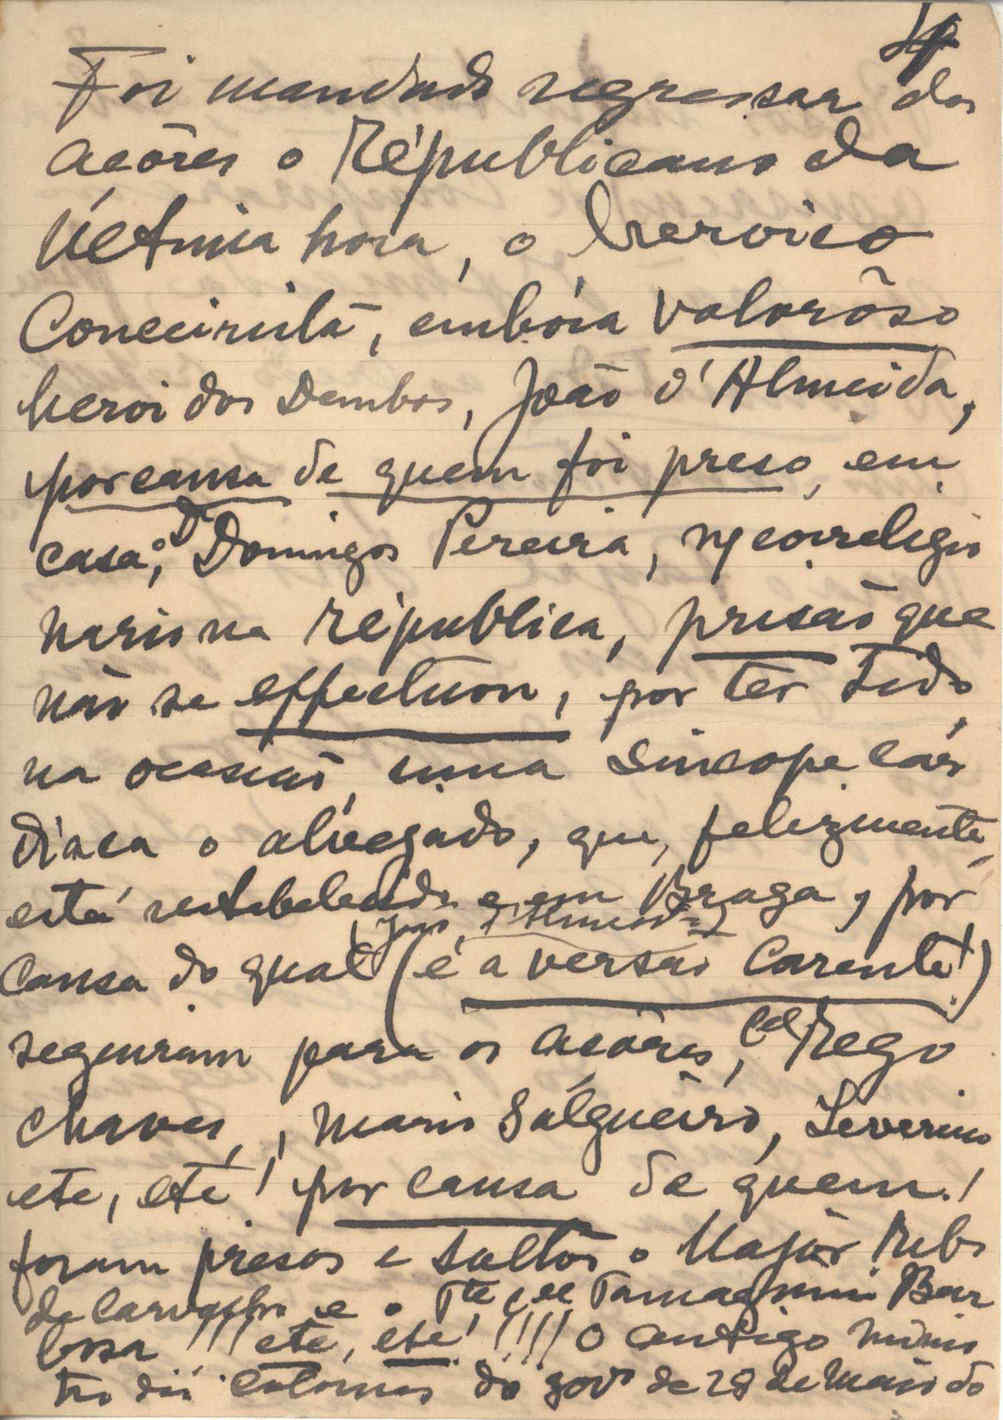 4
Foi mandado regressar dos
Açôres o Républicano da
Última hora, o heroico
Conceirista, embóra valorôso
heroi dos Dembos, João d'Almeida,
por causa de quem foi preso, em
casa, o Dr Domingos Pereira, n/ correligio
nario na républica, prisão que
não se effectuou, por ter tido,
na ocasião, uma sincope cár
díaca o alvejado, que, felizmente,
está restabelecido e em Braga, por
causa do qual (João d'Almeida)
(é a versão corrente!)
seguiram para os Açôres, Cel Rego
Chaves, Mario Salgueiro, Severino
etc, etc! por causa de quem!
foram presos e soltos o Major Ribº
de Carvalho e o Tte Cel Tamagnini Bar
bosa !!! etc, etc! !!!! O antigo minis
tro das colonias do govº de 28 de Maio do